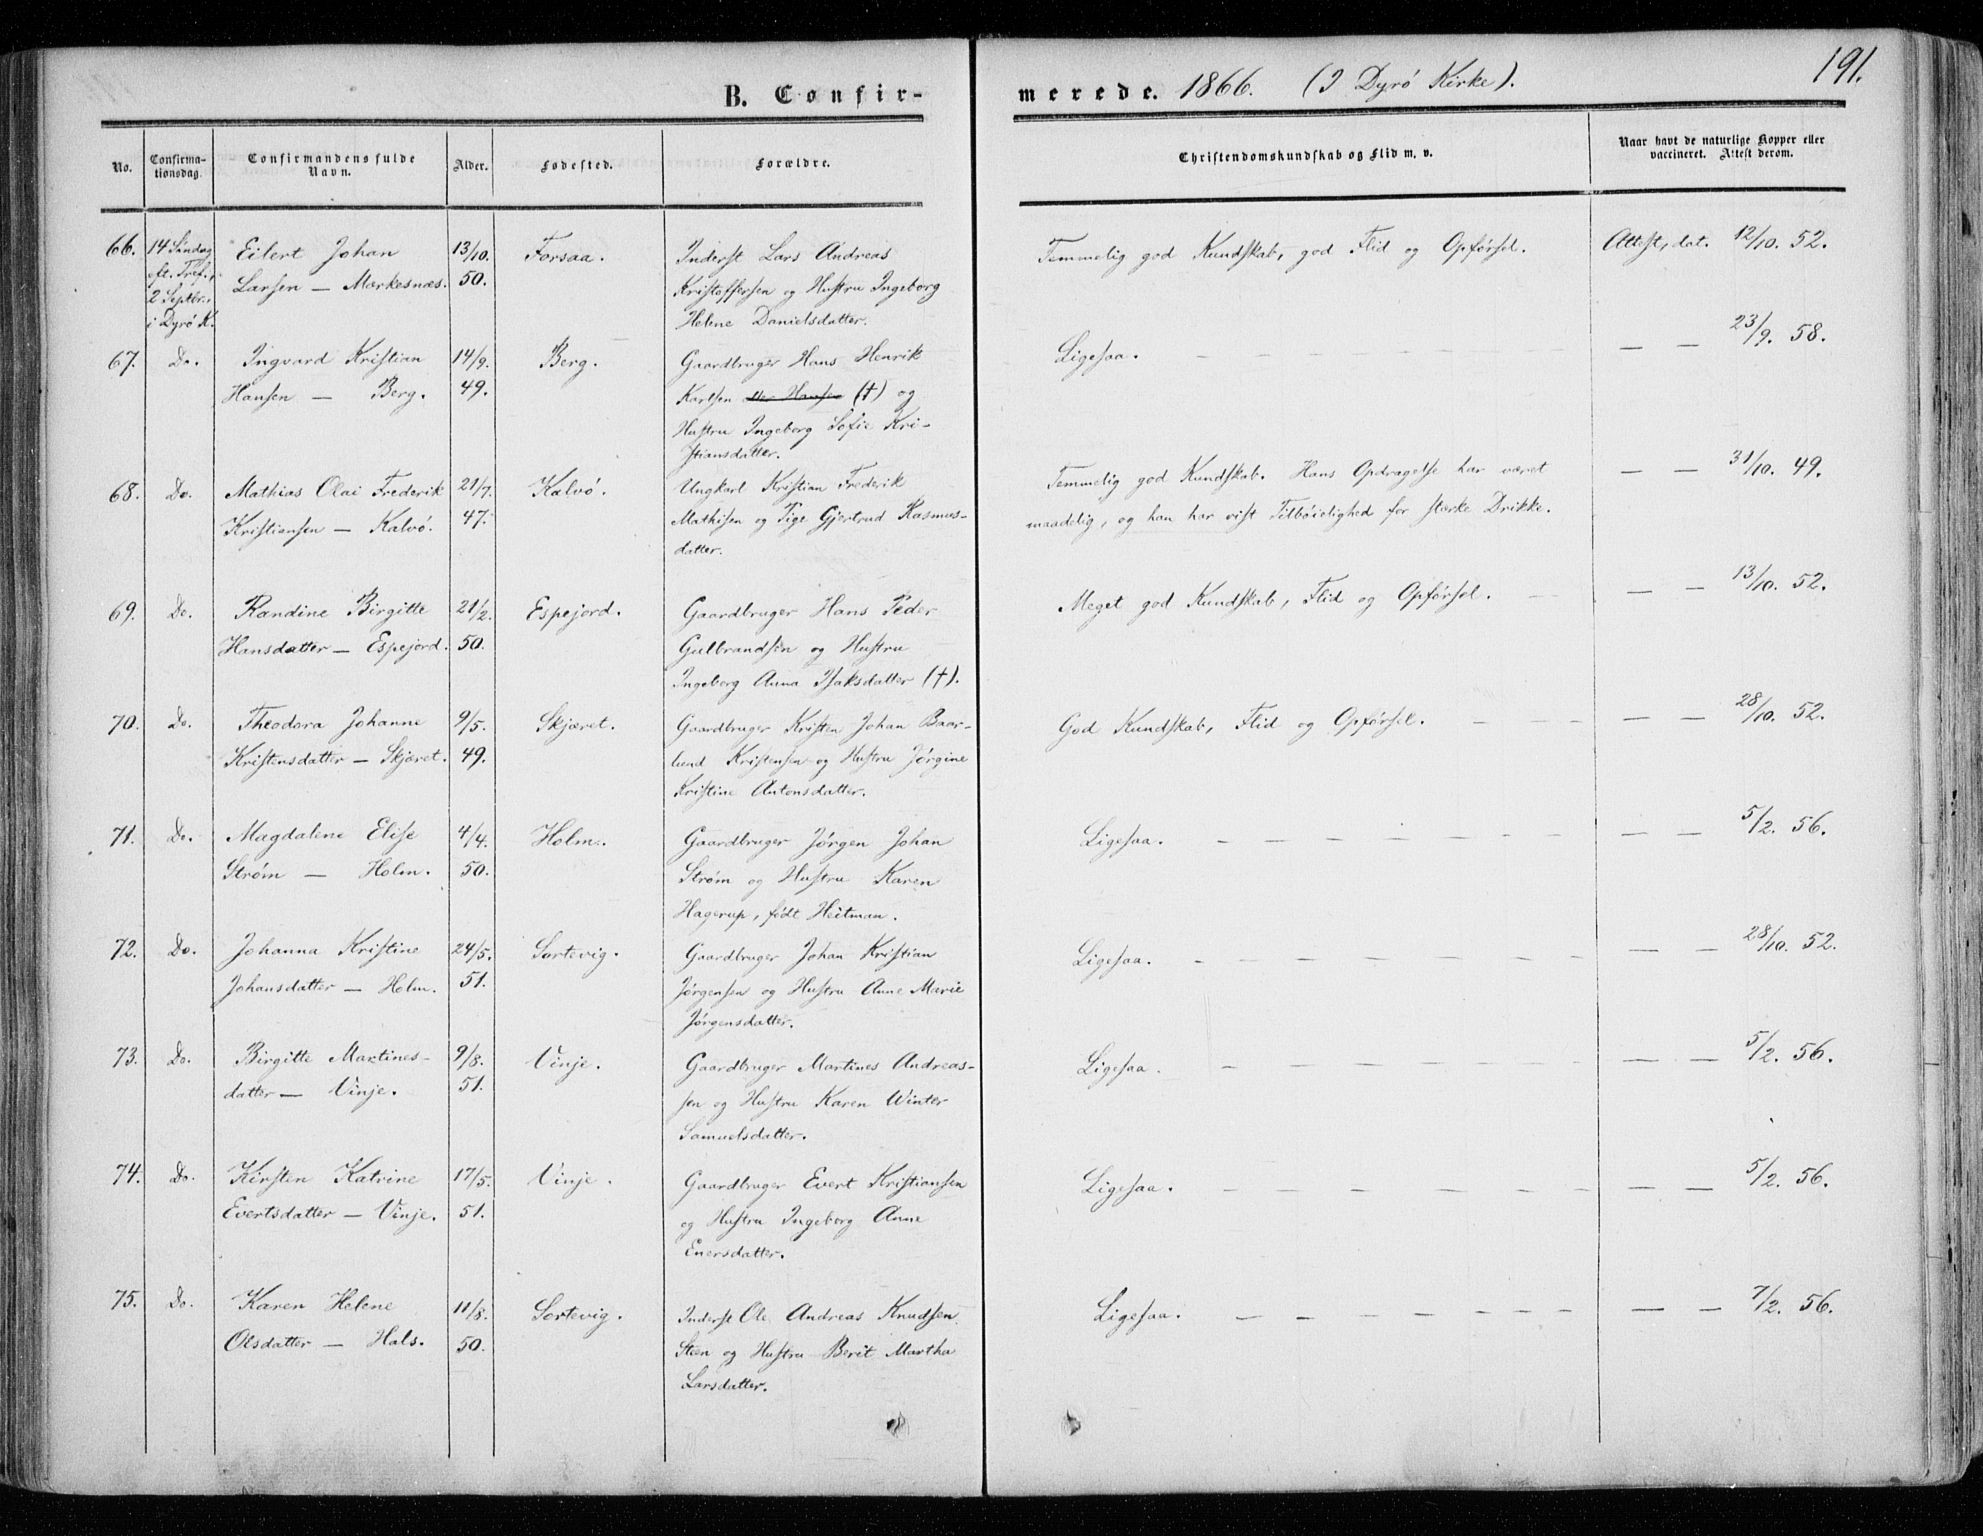 B. Confir-
merede. 1866. (I Dyrö Kirke).
191.
No.
Confirma-
tionsdag.
Confirmandens fulde
Navn.
Alder.
Fødested.
Forældre.
Christendomskundskab og Flid m. v.
Naar havt de naturlige Kopper eller
vaccineret. Attest derom.
66. 14 Söndag Eilert Johan 13/10. Forsaa. Inderst Lars Andreas Temmelig god Kundskab, god Flid og Opförsel. Attest, dat. 12/10. 52.
eft. Tref., Larsen — Markesnæs. 50. Kristoffersen og Hustru Ingeborg
2 Septbr. Helene Danielsdatter.
i Dyrö K.
67. Do. Ingvard Kristian 14/9. Berg. Gaardbruger Hans Henrik Ligesaa. — — 23/9. 58.
Hansen — Berg. 49. Karlsen eller Hansen (†) og
Hustru Ingeborg Sofie Kri-
stiansdatter.
68. Do. Mathias Olai Frederik 21/7. Kalvö. Ungkarl Kristian Frederik Temmelig god Kundskab. Hans Opdragelse har været — — 31/10. 49.
Kristiansen — Kalvö. 47. Mathisen og Pige Gjertrud Rasmus- maadelig, og han har vist Tilböielighed for stærke Drikke.
datter.
69. Do. Randine Birgitte 21/2. Espejord. Gaardbruger Hans Peder Meget god Kundskab, Flid og Opförsel. — — 13/10. 52.
Hansdatter — Espejord. 50. Gulbrandsen og Hustru
Ingeborg Anna Isaksdatter (†).
70. Do. Theodora Johanne 9/5. Skjæret. Gaardbruger Kristen Johan Baar- God Kundskab, Flid og Opförsel. — — 28/10. 52.
Kristensdatter — Skjæret. 49. lund Kristensen og Hustru Jörgine
Kristine Antonsdatter.
71. Do. Magdalene Elise 4/4. Holm. Gaardbruger Jörgen Johan Ligesaa. — — 5/2. 56.
Ström — Holm. 50. Ström og Hustru Karen
Hagerup, födt Heitman.
72. Do. Johanna Kristine 24/5. Sortevig. Gaardbruger Johan Kristian Ligesaa. — — 28/10. 52.
Johansdatter — Holm. 51. Jörgensen og Hustru Anne Marie
Jörgensdatter.
73. Do. Birgitte Martines- 9/8. Vinje. Gaardbruger Martines Andreas- Ligesaa. — — 5/2. 56.
datter — Vinje. 51. sen og Hustru Karen Winter
Samuelsdatter.
74. Do. Kirsten Katrine 17/5. Vinje. Gaardbruger Evert Kristiansen Ligesaa. — — 5/2. 56.
Evertsdatter — Vinje. 51. og Hustru Ingeborg Anne
Enersdatter.
75. Do. Karen Helene 11/8. Sortevig. Inderst Ole Andreas Knudsen Ligesaa. — — 7/2. 56.
Olsdatter — Hals. 50. Steen og Hustru Berit Martha
Larsdatter.